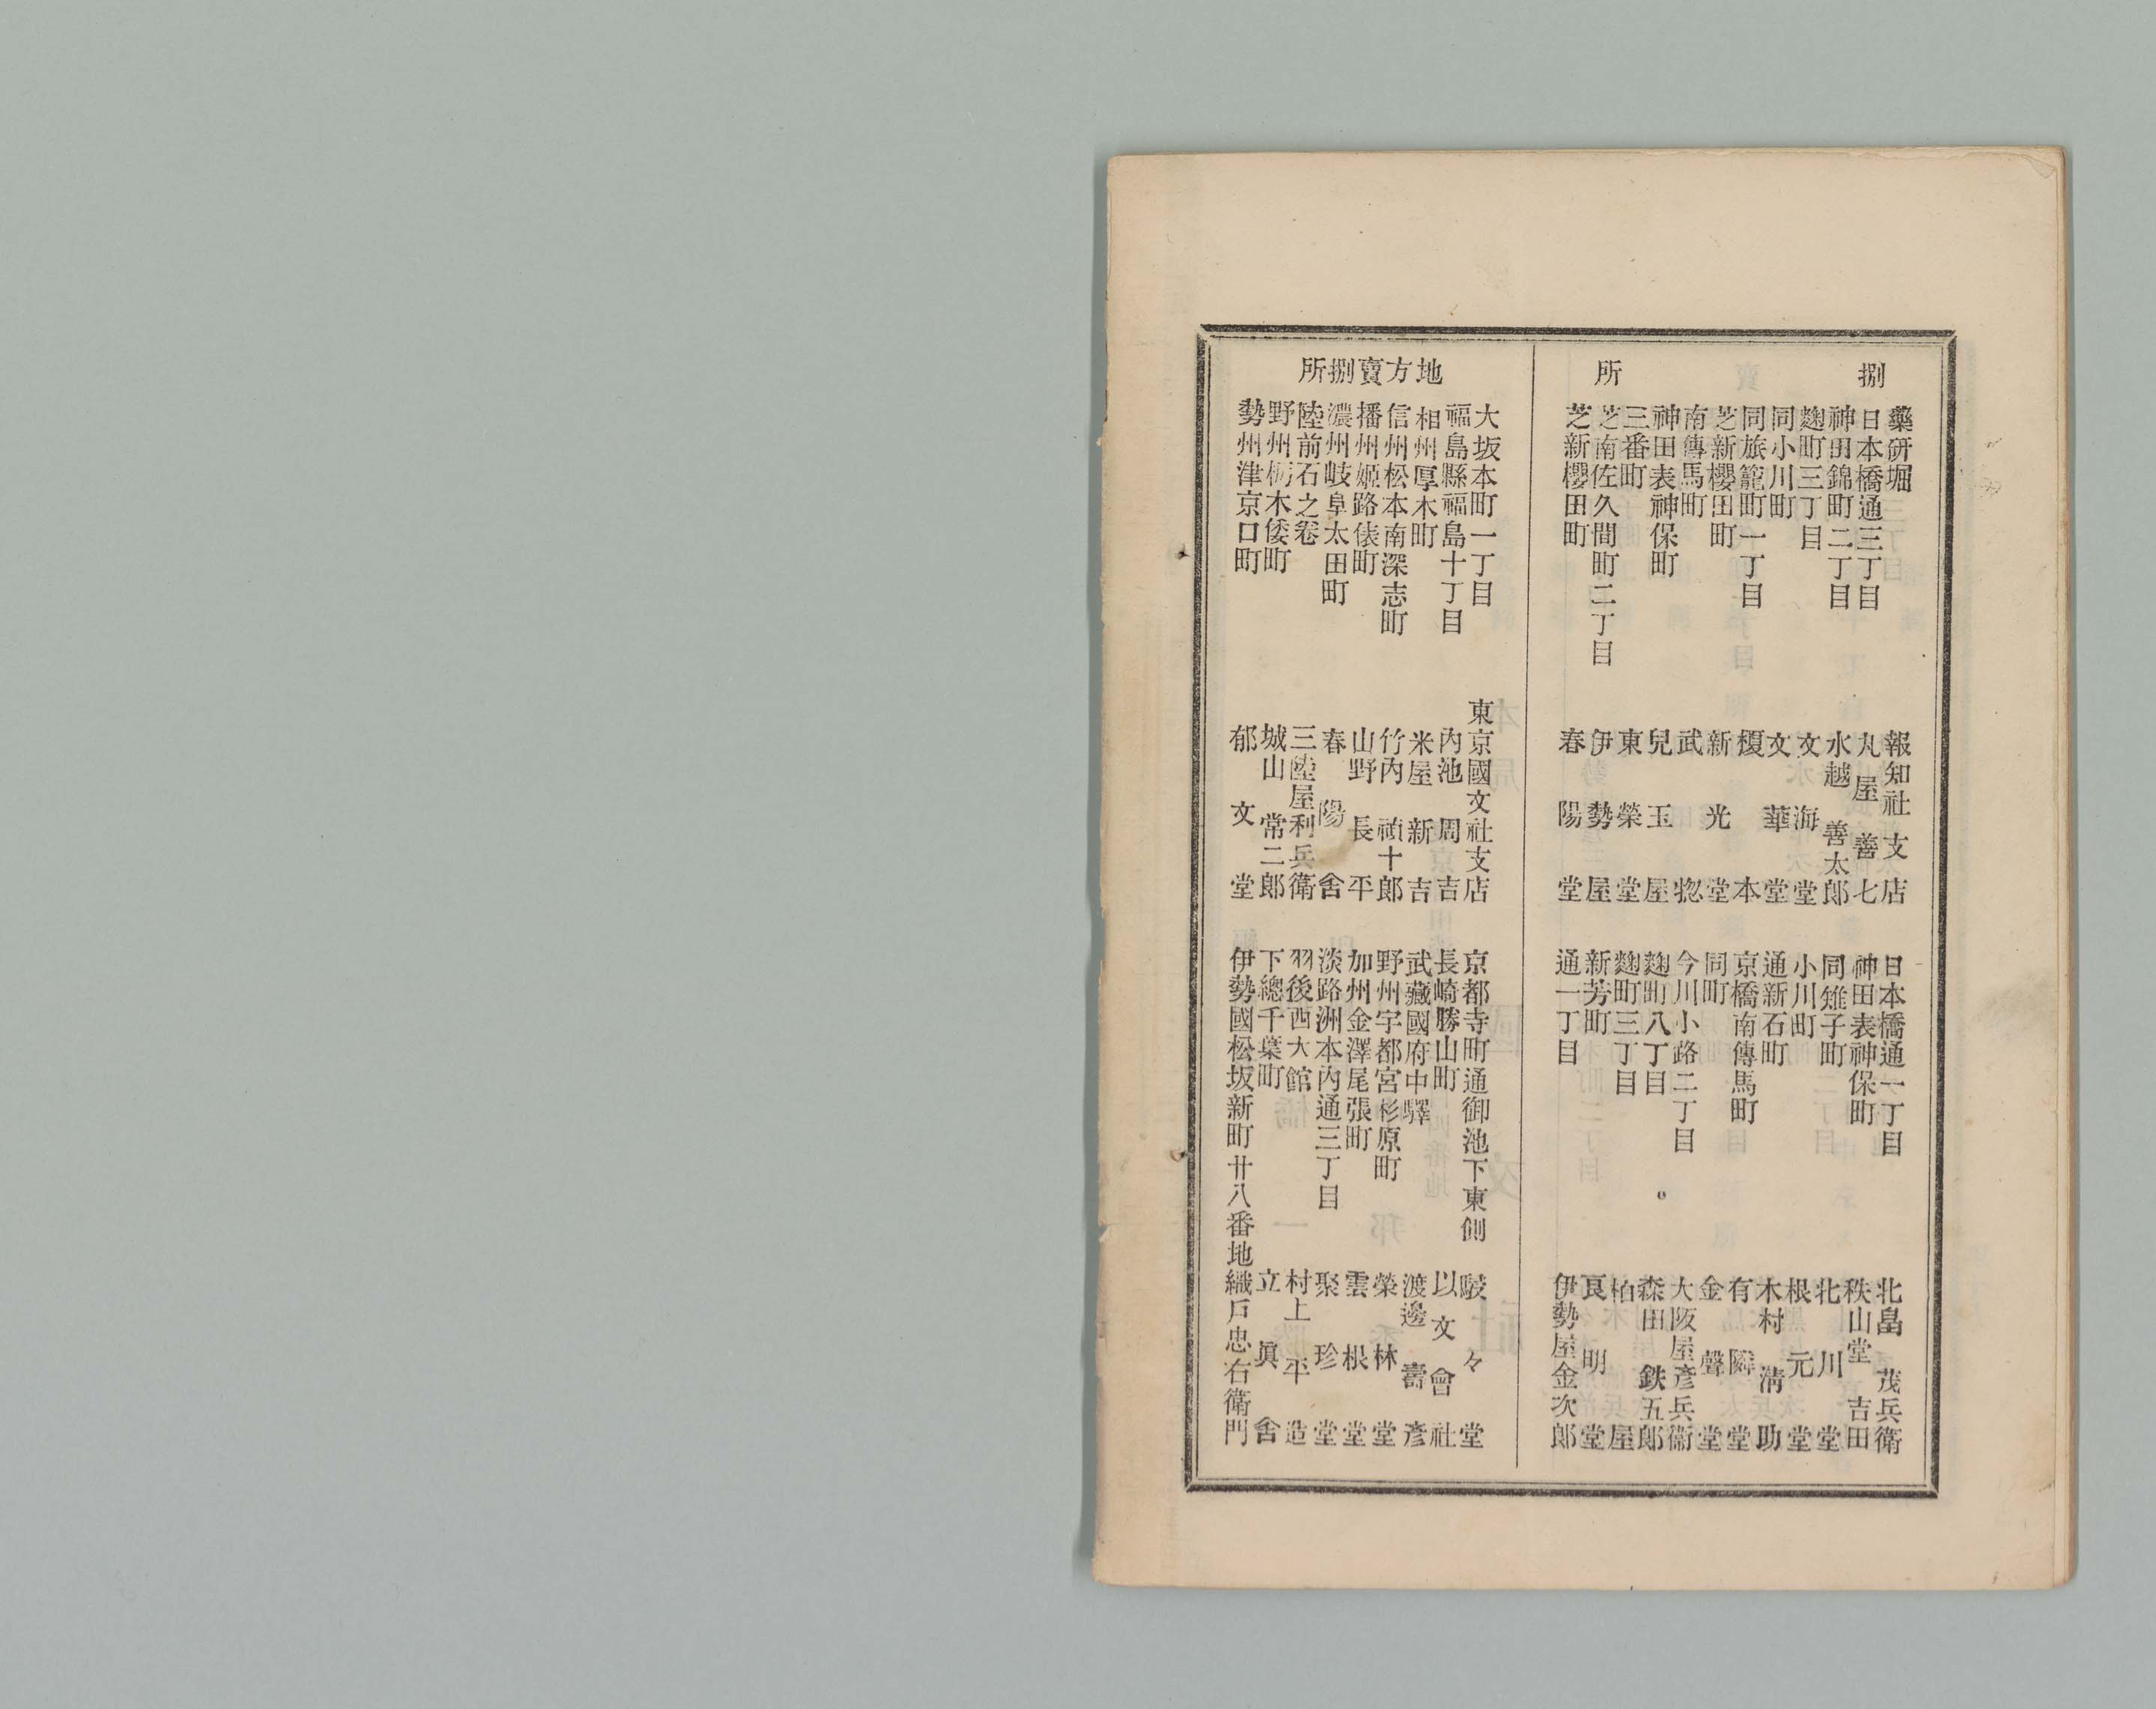 捌
所
藥研堀　報知社支店　日本橋通一丁目　北畠茂兵衛
日本橋通三丁目　丸屋善七　神田表神保町　秩山堂吉田
神田錦町二丁目　水越善太郎　同雉子町　北川堂
麹町三丁目　文海堂　小川町　根元堂
同小川町　文華堂　通新石町　木村淸助
同旅籠町一丁目　榎本　京橋南傳馬町　有隣堂
芝新櫻田町　新光堂　同町　金聲堂
南傳馬町　武惣　今川小路二丁目　大阪屋彥兵衞
神田表神保町　兒玉屋　麹町八丁目　森田鉄五郎
三番町　東榮堂　麹町三丁目　柏屋
芝南佐久間町二丁目　伊勢屋　新芳町　良明堂
芝新櫻田町　春陽堂　通一丁目　伊勢屋金次郎
地方賣捌所
大坂本町一丁目　東京國文社支店　京都寺町通御池下東側　駸々堂
福島縣福島十丁目　內池周吉　長崎勝山町　以文會社
相州厚木町　米屋新吉　武藏國府中驛　渡邊壽彥
信州松本南深志町　竹內禎十郎　野州宇都宮杉原町　榮林堂
播州姬路俵町　山野長平　加州金澤尾張町　雲根堂
濃州岐阜太田町　春陽舍　淡路洲本內通三丁目　聚珍堂
陸前石之卷　三陸屋利兵衛　羽後西大館　村上平造
野州栃木倭町　城山常二郎　下總千葉町　立眞舍
勢州津京口町　郁文堂　伊勢國松坂新町廿八番地　織戶忠右衛門